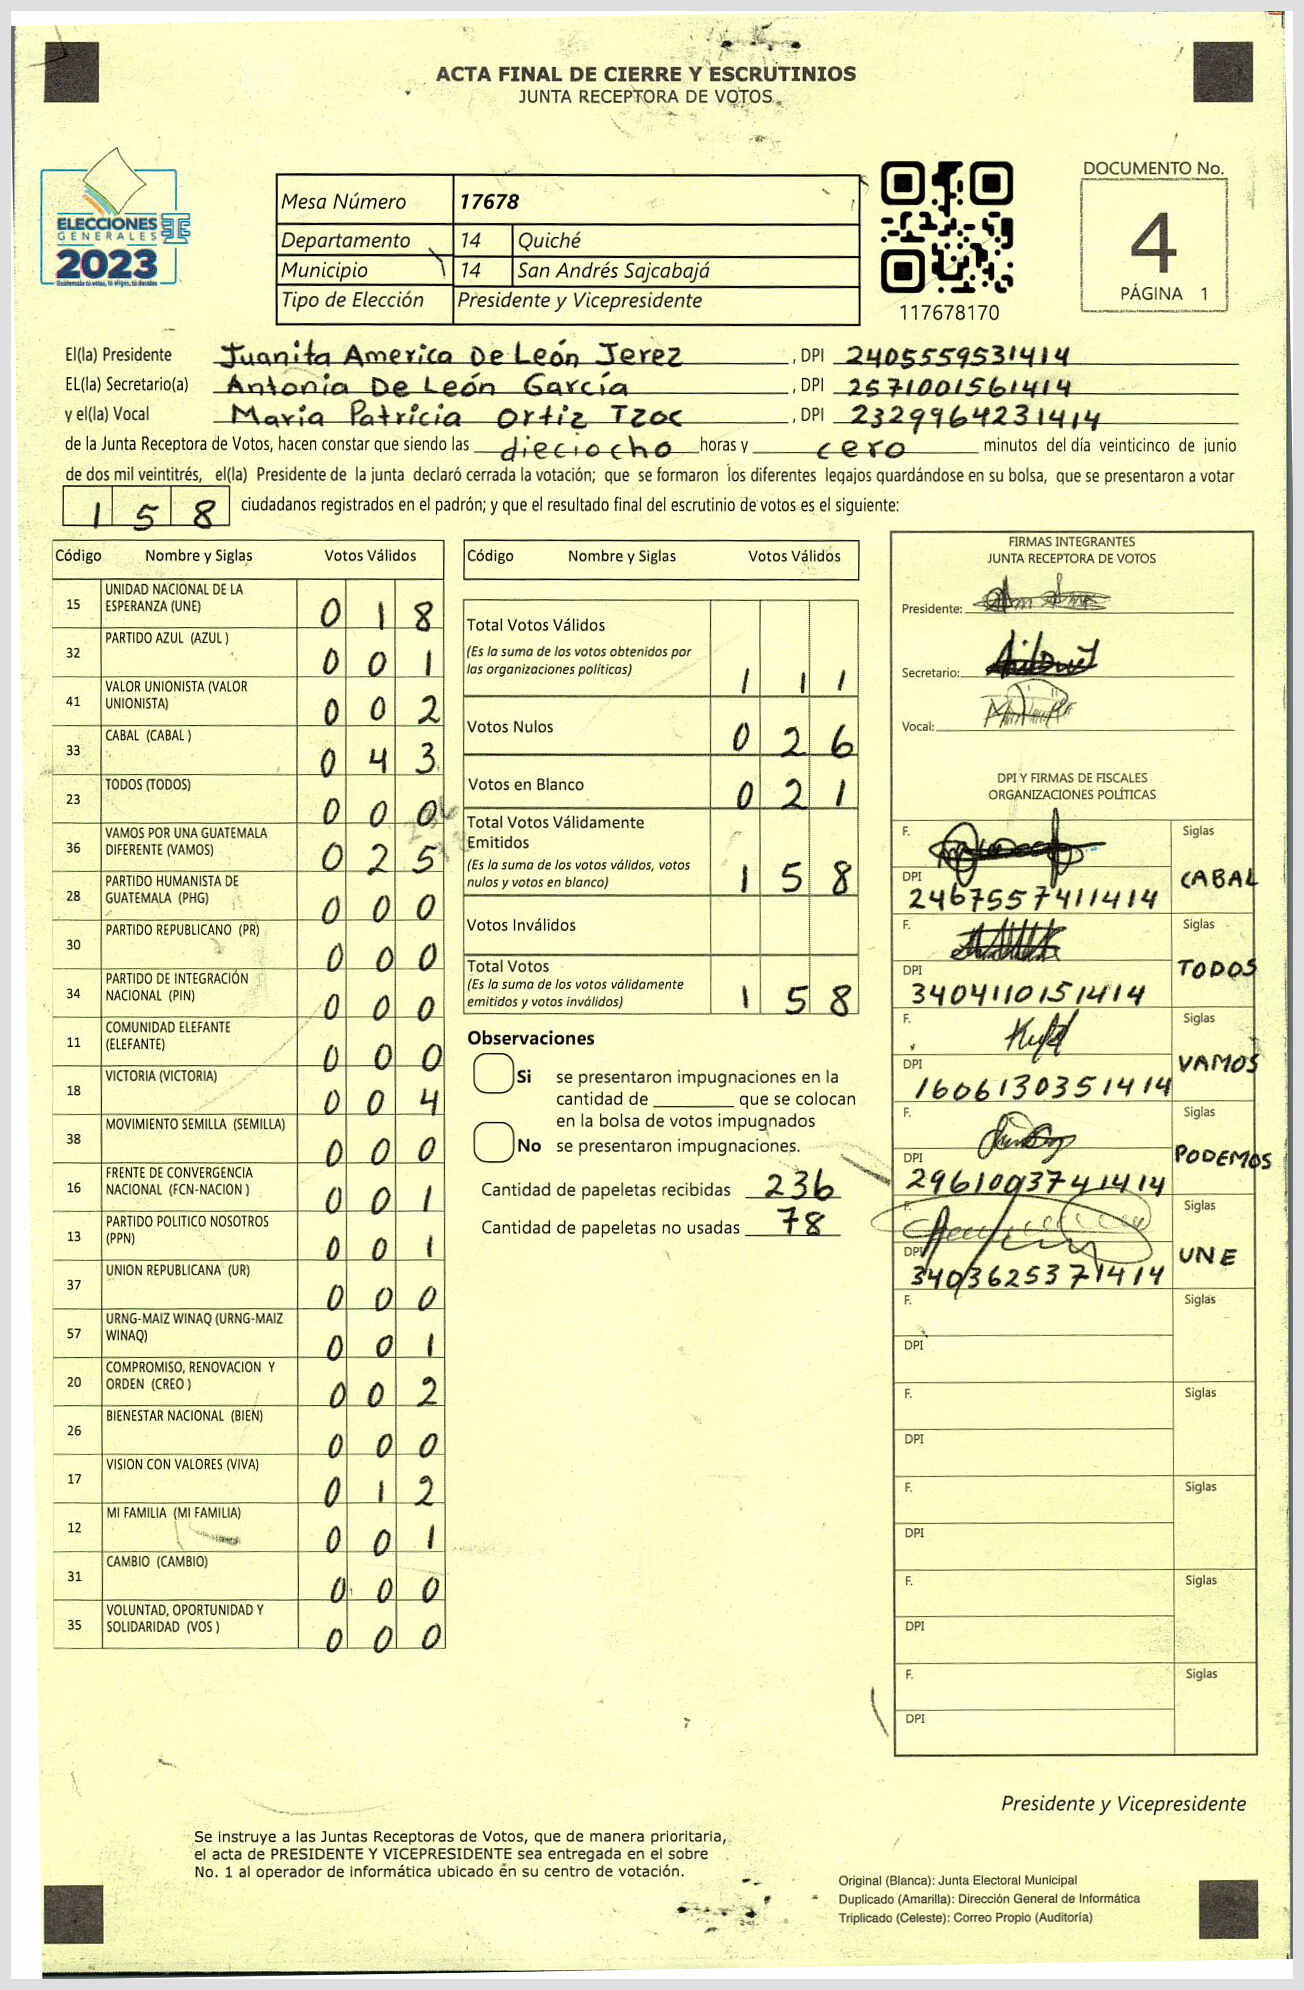 ACTA FINAL DE CIERRE Y ESCRUTINIOS
JUNTA RECEPTORA DE VOTOS
ELECCIONES
GENERALES
2023
Mesa Número 17678
Departamento 14 Quiché
Municipio 14 San Andrés Sajcabajá
Tipo de Elección Presidente y Vicepresidente
117678170
DOCUMENTO No.
4
PÁGINA 1
El(la) Presidente Juanita America De León Jerez, DPI 2405559531414
EL(la) Secretario(a) Antonia De León García, DPI 2571001561414
y el(la) Vocal Maria Patricia Ortiz Tzoc, DPI 2329964231414
de la Junta Receptora de Votos, hacen constar que siendo las dieciocho horas y cero minutos del día veinticinco de junio
de dos mil veintitrés, el(la) Presidente de la junta declaró cerrada la votación; que se formaron los diferentes legajos guardándose en su bolsa, que se presentaron a votar
158 ciudadanos registrados en el padrón; y que el resultado final del escrutinio de votos es el siguiente:
Código Nombre y Siglas Votos Válidos
15 UNIDAD NACIONAL DE LA ESPERANZA (UNE) 018
32 PARTIDO AZUL (AZUL ) 001
41 VALOR UNIONISTA (VALOR UNIONISTA) 002
33 CABAL (CABAL ) 043
23 TODOS (TODOS) 000
36 VAMOS POR UNA GUATEMALA DIFERENTE (VAMOS) 025
28 PARTIDO HUMANISTA DE GUATEMALA (PHG) 000
30 PARTIDO REPUBLICANO (PR) 000
34 PARTIDO DE INTEGRACIÓN NACIONAL (PIN) 000
11 COMUNIDAD ELEFANTE (ELEFANTE) 000
18 VICTORIA (VICTORIA) 004
38 MOVIMIENTO SEMILLA (SEMILLA) 000
16 FRENTE DE CONVERGENCIA NACIONAL (FCN-NACION ) 001
13 PARTIDO POLITICO NOSOTROS (PPN) 001
37 UNION REPUBLICANA (UR) 000
57 URNG-MAIZ WINAQ (URNG-MAIZ WINAQ) 001
20 COMPROMISO, RENOVACION Y ORDEN (CREO ) 002
26 BIENESTAR NACIONAL (BIEN) 000
17 VISION CON VALORES (VIVA) 012
12 MI FAMILIA (MI FAMILIA) 001
31 CAMBIO (CAMBIO) 000
35 VOLUNTAD, OPORTUNIDAD Y SOLIDARIDAD (VOS ) 000
Código Nombre y Siglas Votos Válidos
Total Votos Válidos 111
(Es la suma de los votos obtenidos por
las organizaciones políticas)
Votos Nulos 026
Votos en Blanco 021
Total Votos Válidamente
Emitidos 158
(Es la suma de los votos válidos, votos
nulos y votos en blanco)
Votos Inválidos
Total Votos 158
(Es la suma de los votos válidamente
emitidos y votos inválidos)
Observaciones
Si se presentaron impugnaciones en la
cantidad de ________ que se colocan
en la bolsa de votos impugnados
No se presentaron impugnaciones.
Cantidad de papeletas recibidas 236
Cantidad de papeletas no usadas 78
FIRMAS INTEGRANTES
JUNTA RECEPTORA DE VOTOS
Presidente:
Secretario:
Vocal:
DPI Y FIRMAS DE FISCALES
ORGANIZACIONES POLÍTICAS
F. Siglas
DPI CABAL
2467557411414
F. Siglas
DPI TODOS
3404110151414
F. Siglas
DPI VAMOS
1606130351414
F. Siglas
DPI PODEMOS
2961003741414
F. Siglas
DPI UNE
3403625371414
F. Siglas
DPI
F. Siglas
DPI
F. Siglas
DPI
F. Siglas
DPI
F. Siglas
DPI
Presidente y Vicepresidente
Se instruye a las Juntas Receptoras de Votos, que de manera prioritaria,
el acta de PRESIDENTE Y VICEPRESIDENTE sea entregada en el sobre
No. 1 al operador de informática ubicado en su centro de votación.
Original (Blanca): Junta Electoral Municipal
Duplicado (Amarilla): Dirección General de Informática
Triplicado (Celeste): Correo Propio (Auditoría)